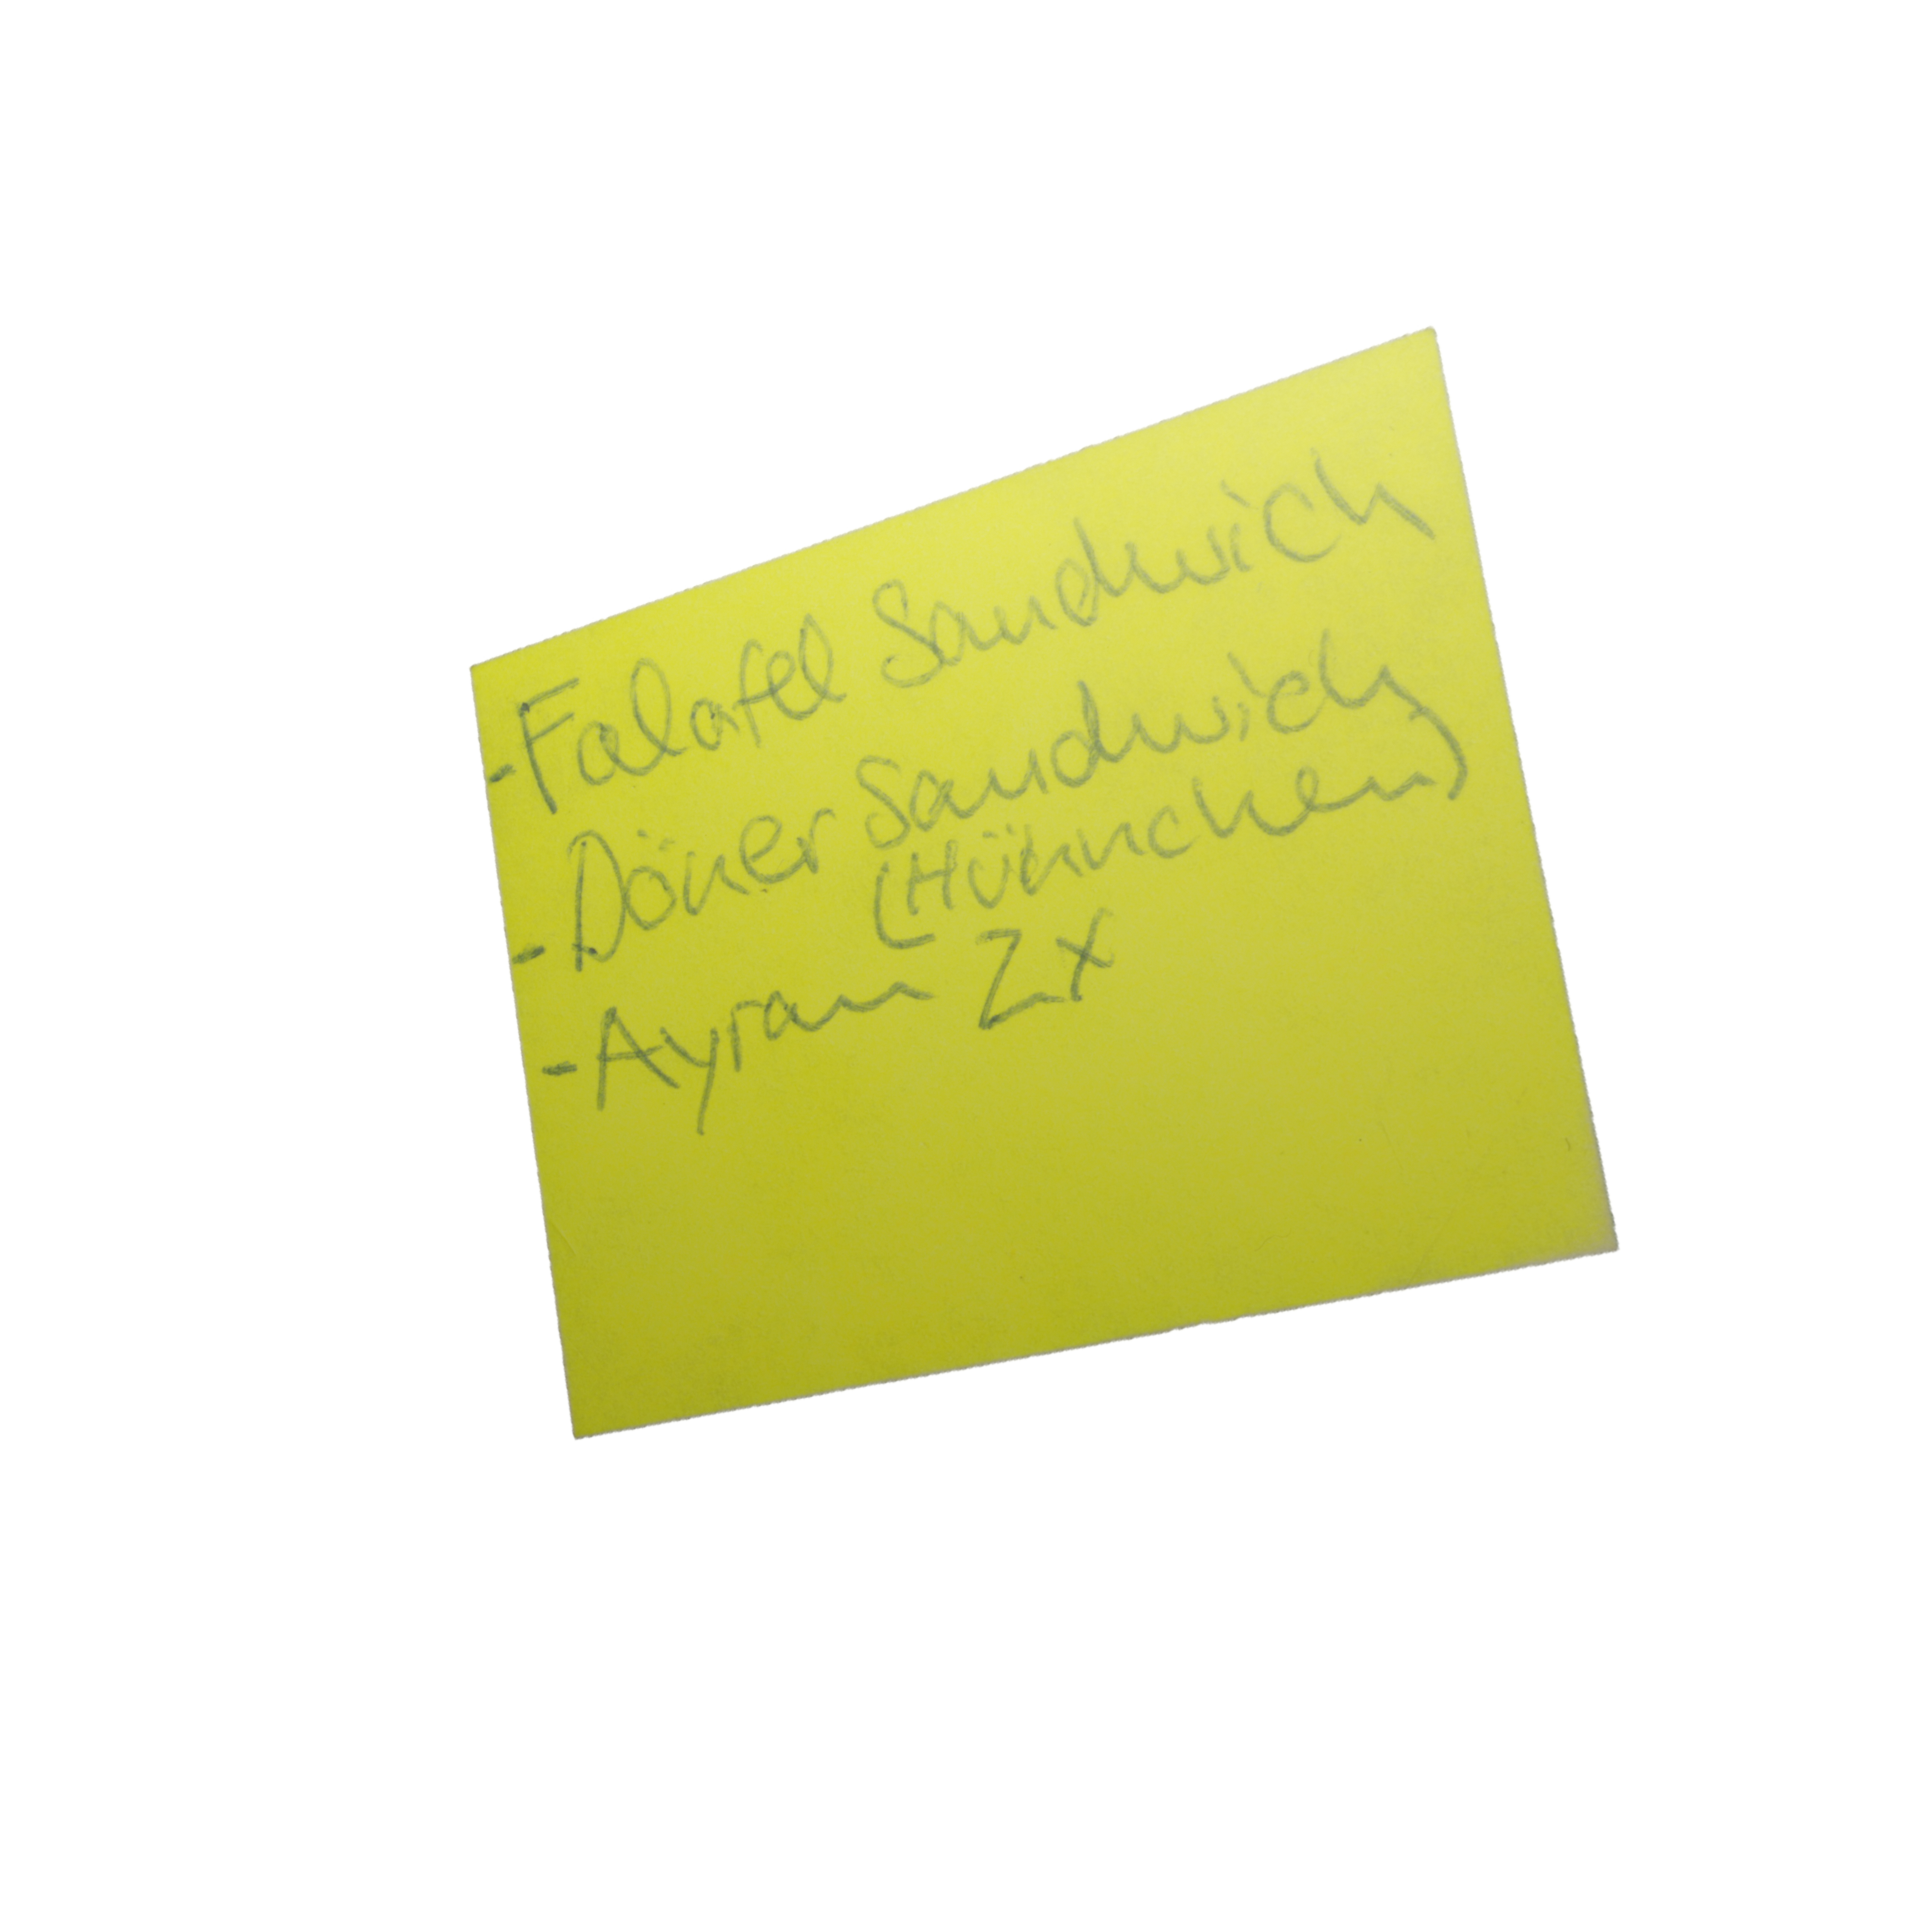 - Falafel Sandwich
- Döner Sandwich
(Hühnchen)
- Ayran 2x